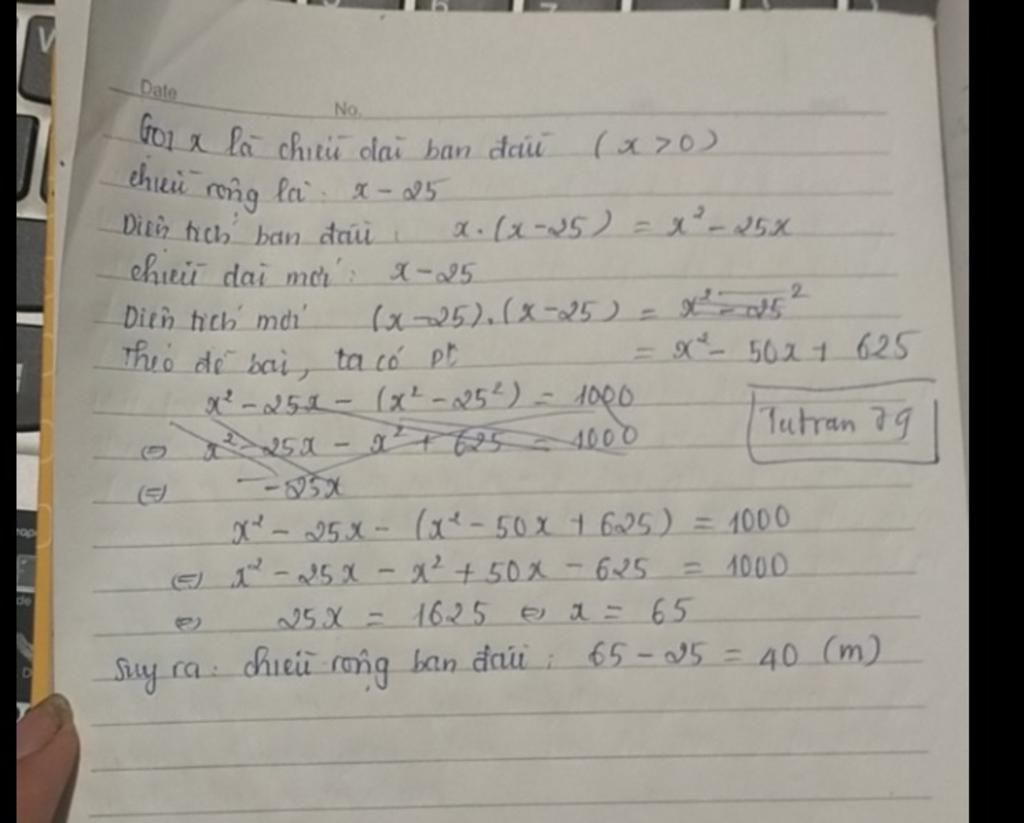 Date
No.
Gọi x là chiều dài ban đầu (x > 0)
chiều rộng là: x - 25
Diện tích ban đầu: x.(x-25) = x² - 25x
chiều dài mới: x - 25
Diện tích mới (x-25).(x-25) = x² - 25²
Theo đề bài, ta có pt = x² - 50x + 625
x² - 25x - (x² - 25²) = 1000
Tutran 79
⇔ x² - 25x - x² + 625 = 1000
⇔ - 25x
x² - 25x - (x² - 50x + 625) = 1000
⇔ x² - 25x - x² + 50x - 625 = 1000
⇔ 25x = 1625 ⇔ x = 65
Suy ra: chiều rộng ban đầu: 65 - 25 = 40 (m)